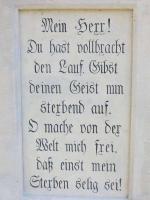 Mein Herr!
Du hast vollbracht
den Lauf. Gibst
deinen Geist nun
sterbend auf.
O mache von der
Welt mich frei,
daß einst mein
Sterben selig sei!